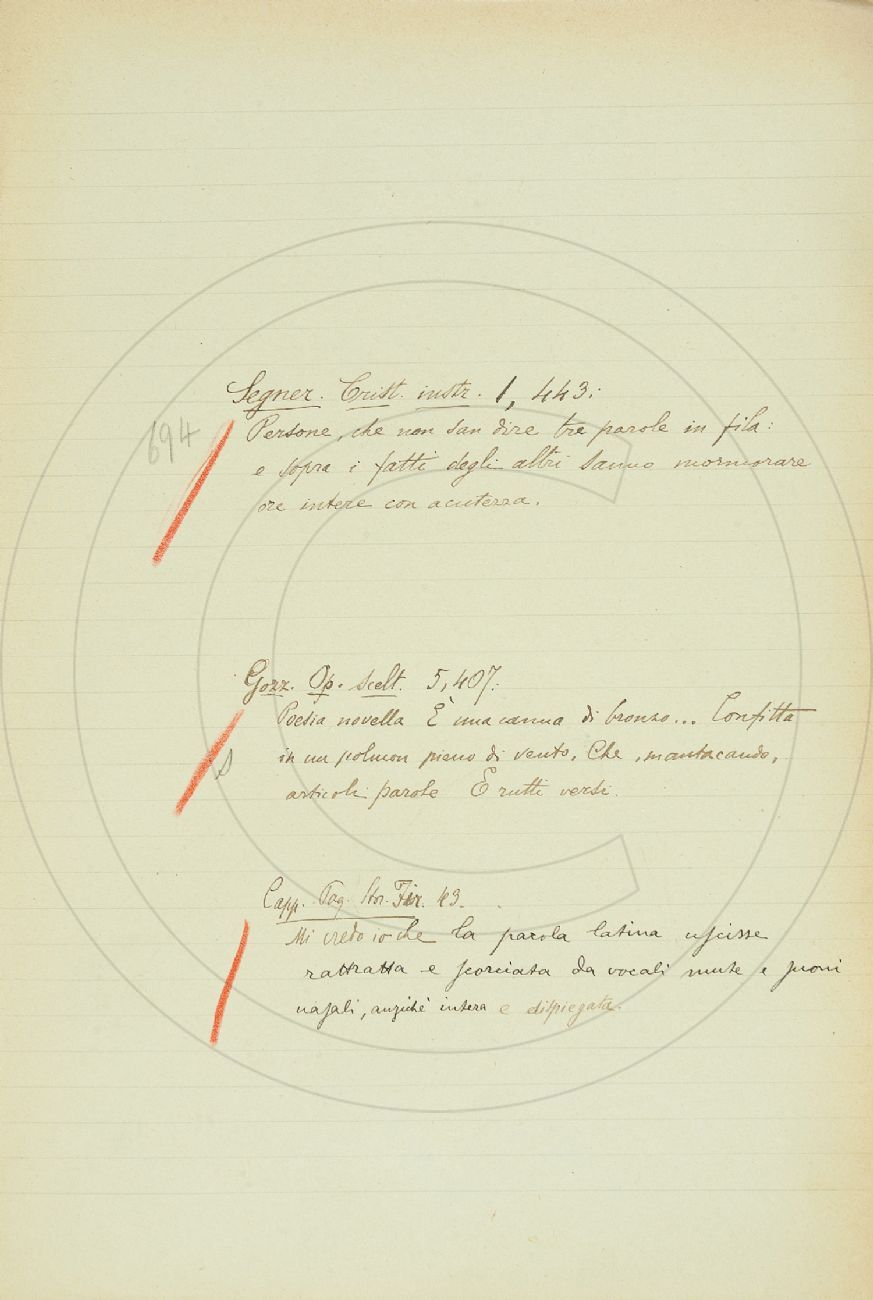 694
Segner. Crist. instr. 1, 443:
Persone, che non san dire tre parole in fila:
e sopra i fatti degli altri sanno mormorare
ore intere con acutezza.
Gozz. Op. scelt. 5,407:
S
Poesia novella È una canna di bronzo... Confitta
in un polmon pieno di vento, Che, mantacando,
articoli parole E rutti versi.
Capp. Pag. Stor. Fir. 43.
Mi credo io che la parola latina uscisse
rattratta e scorciata da vocali mute e suoni
nasali, anzichè intera e dispiegata.